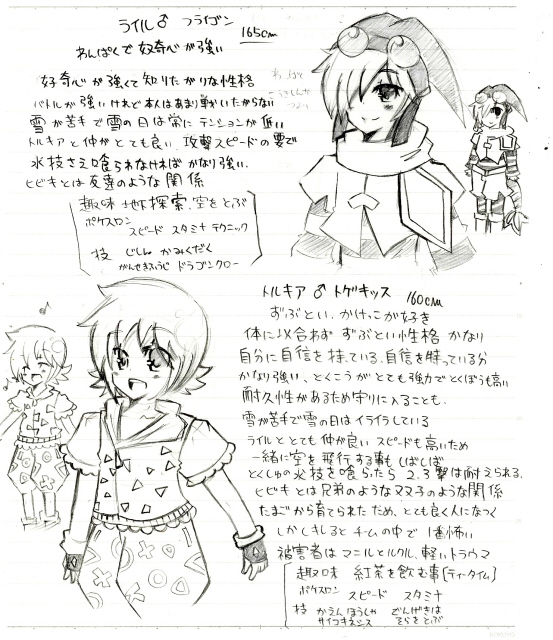 ライル♂ フライゴン 165cm
わんぱくで 好奇心が強い
好奇心が強くて知りたがりな性格
バトルが強いけれど本人はあまり戦いたがらない
雪が苦手で雪の日は常にテンションが低い
トルキアと仲がとても良い、攻撃スピードの要で
氷技さえ喰らわなければかなり強い。
ヒビキとは友達のような関係
趣味 地下探索、空をとぶ
ポケスロン
スピード スタミナ テクニック
技 じしん かみくだく
がんせきふうじ ドラゴンクロー
トルキア♂ トゲキッス 160cm
ずぶとい、かけっこが好き
体に似合わず ずぶとい性格 かなり
自分に自信を持っている、自信を持っている分
かなり強い、とくこうがとても強力でとくぼうも高い
耐久性があるため守りに入ることも、
雪が苦手で雪の日はイライラしている
ライルととても仲が良い スピードも高いため
一緒に空を飛行する事もしばしば
とくしゅの氷技を喰らったら 2、3撃は耐えられる、
ヒビキとは兄弟のような父子のような関係
たまごから育てられたため、とても良く人になつく
しかしキレると チームの中で 1番怖い
被害者はマニルとルクル、軽いトラウマ
趣味 紅茶を飲む事[ティータイム]
ポケスロン スピード スタミナ
技 かえんほうしゃ でんげきは
サイコキネシス そらをとぶ